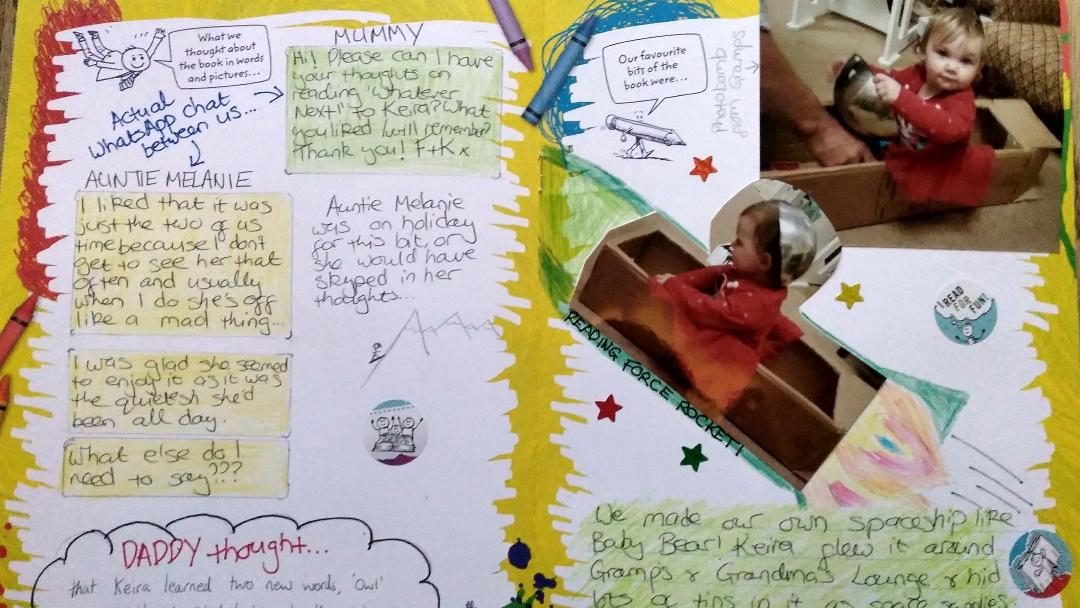 What we
thought about
the book in words
and pictures...
Actual
WhatsApp chat
between us...
MUMMY
Hi! Please can I have
your thoughts on
reading 'Whatever
Next!' to Keira? What
you liked/will remember?
Thank you! F+K x
AUNTIE MELANIE
I liked that it was
just the two of us
time because I don't
get to see her that
often and usually
when I do she's off
like a mad thing...
I was glad she seemed
to enjoy it as it was
the quietesh she'd
been all day.
What else do I
need to say???
Auntie Melanie
was on holiday
for this bit, or
she would have
skyped in her
thoughts...
DADDY thought...
that Keira learned two new words, 'owl'
Our favourite
bits of the
book were...
Photobomb
from Gramps
I READ
FOR
FUN!
READING FORCE ROCKET!
We made our own spaceship like
Baby Bear! Keira flew it around
Gramps & Grandma's Lounge & hid
lots of tins in it as space supplies